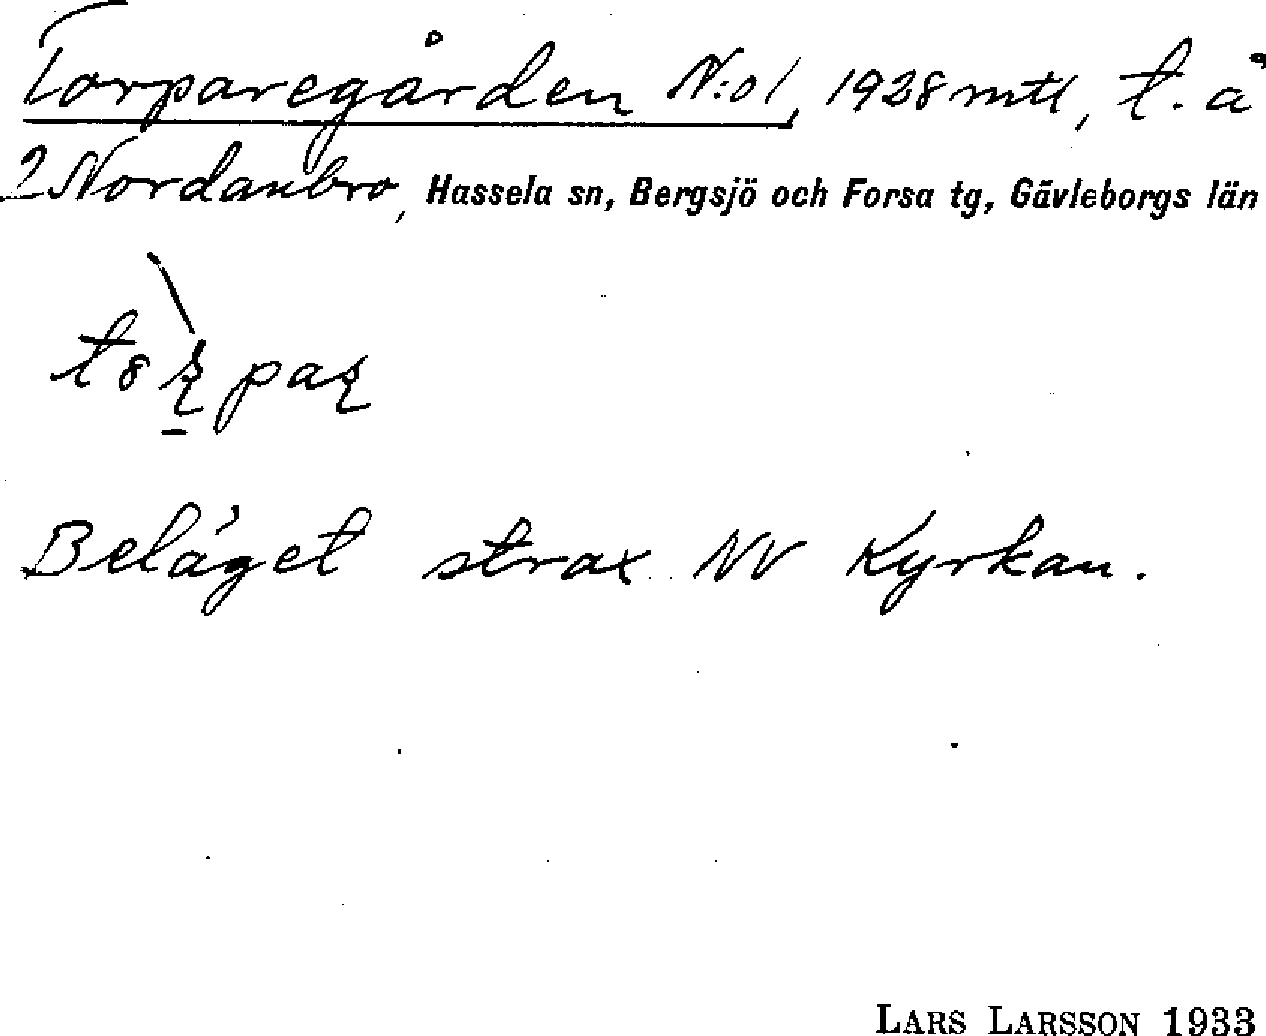 Torparegården N:o1, 1928 mtl, t. å
2 Nordanbro, Hassela sn, Bergsjö och Forsa tg, Gävleborgs län
Beläget strax NV Kyrkan.
LARS LARSSON 1933